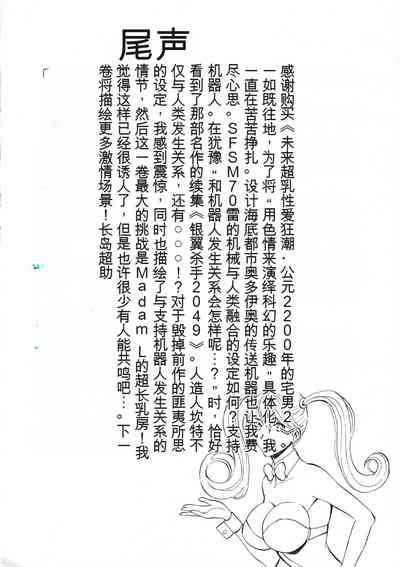 尾声
感谢购买《未来超乳性爱狂潮·公元2200年的宅男2》。
一如既往地，为了将"用色情来演绎科幻的乐趣"具体化，我
一直在苦苦挣扎。设计海底都市奥多伊奥的传送机器也让我费
尽心思。SFSM70雷的机械与人类融合的设定如何？支持
机器人。在犹豫"和机器人发生关系会怎样呢…？"时，恰好
看到了那部名作的续集《银翼杀手2049》。人造人坎特不
仅与人类发生关系，还有○○○！？对于毁掉前作的匪夷所思
的设定，我感到震惊，同时也描绘了与支持机器人发生关系的
情节，然后这一卷最大的挑战是Madam L的超长乳房！我
觉得这样已经很诱人了，但是也许很少有人能共鸣吧…。下一
卷将描绘更多激情场景！长岛超助